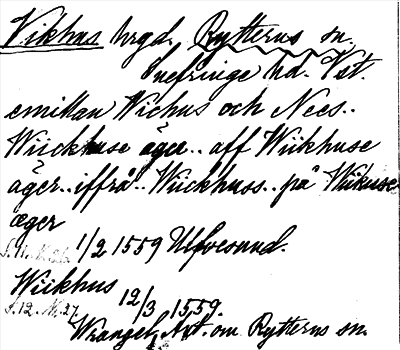 Vikhus hrgd, Rytterns sn.
Snefringe hd. Vst.
emillan Wichus och Nees..
Wiickhuse äger.. aff Wiikhuse
äger.. iffrå.. Wiickhuss.. på Wiikuse
æger
1/2 1559 Ulfvesund.
Wiikhus
12/3 1559.
S. 12. N. 27.
Wrangel, Ant. om Rytterns sn.